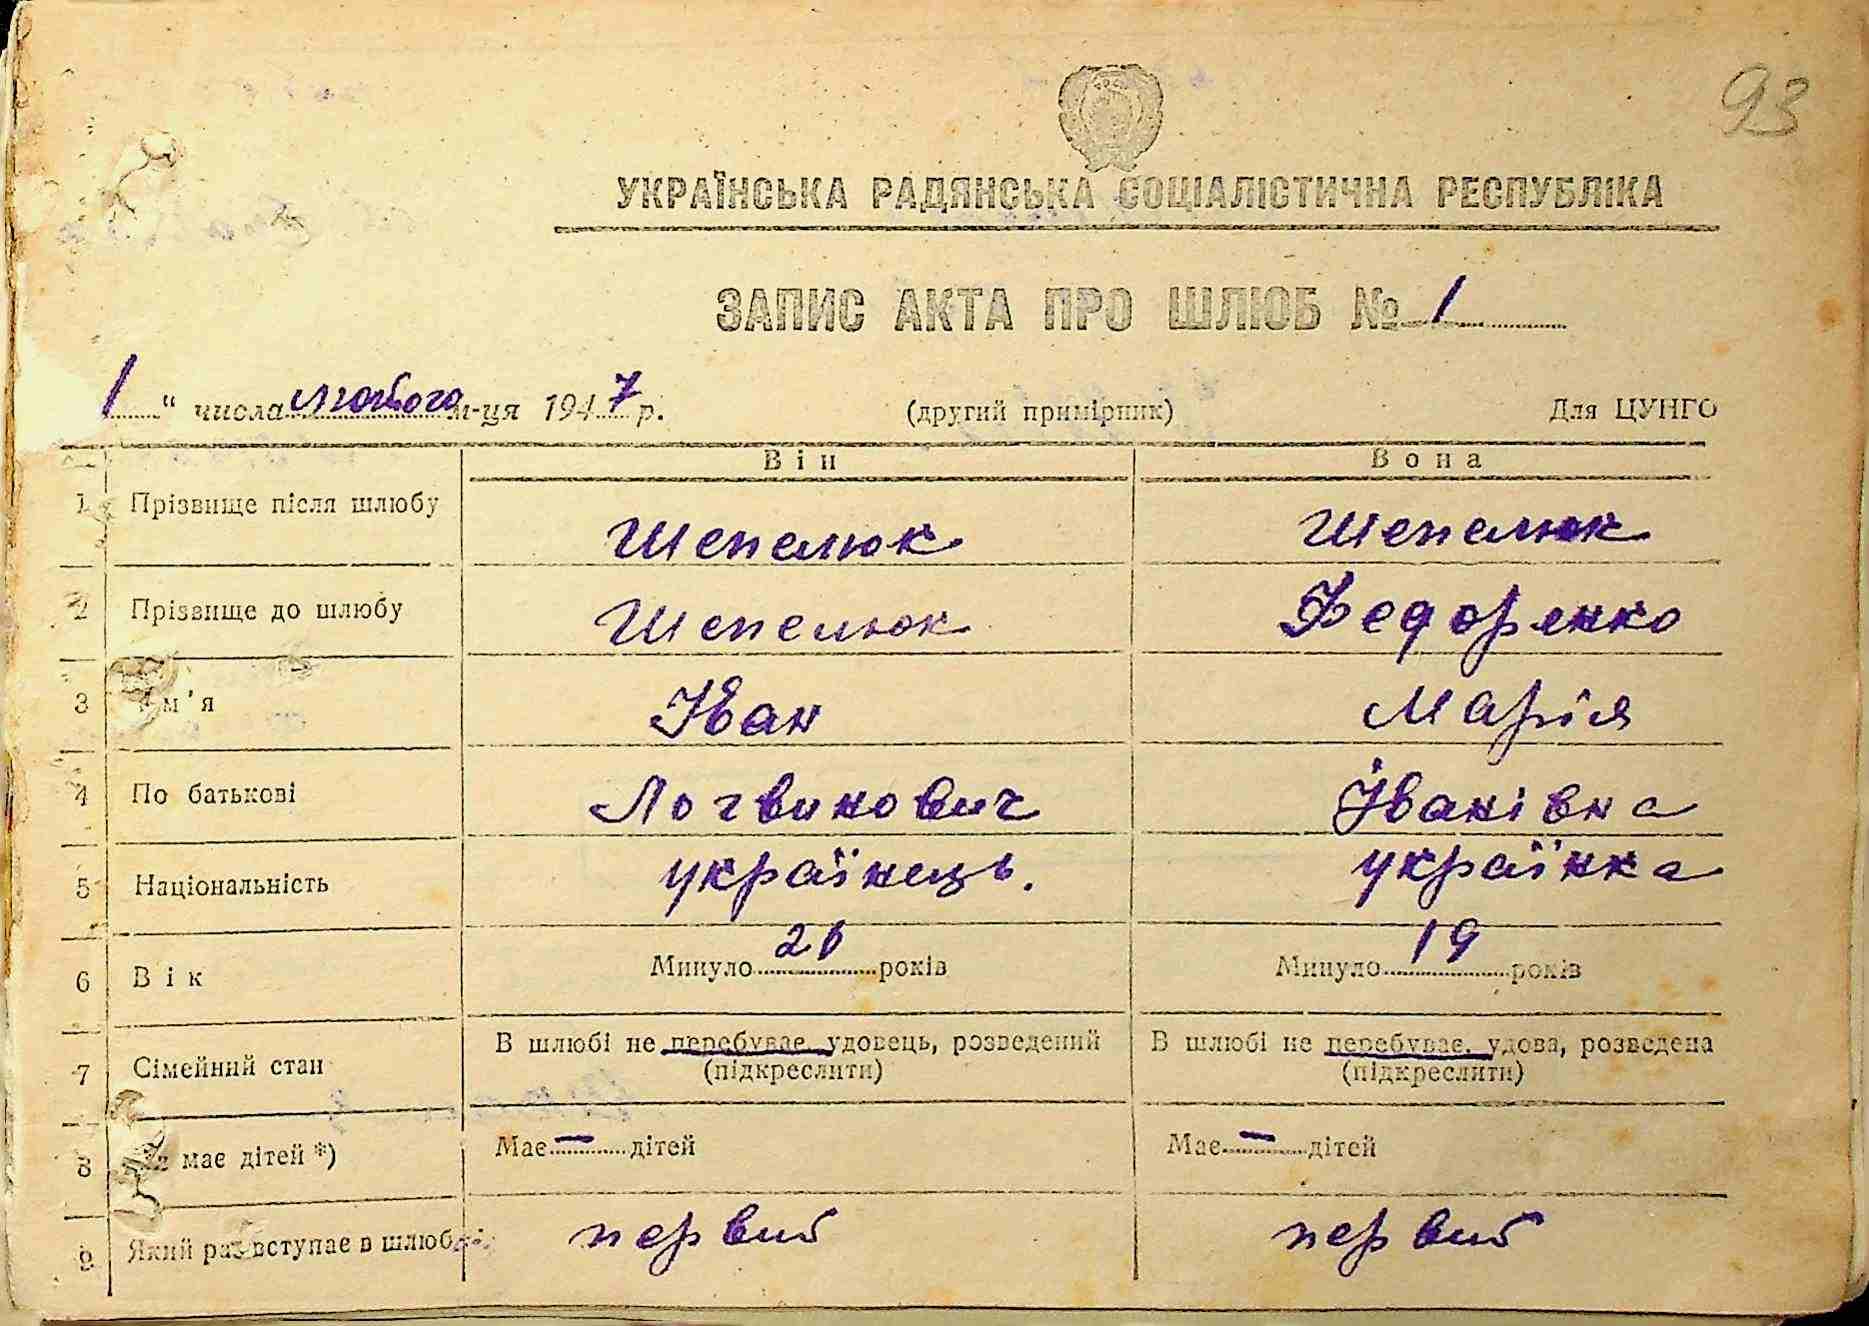 93
УКРАЇНСЬКА РАДЯНСЬКА СОЦІАЛІСТИЧНА РЕСПУБЛІКА
ЗАПИС АКТА ПРО ШЛЮБ № 1
1 " числа лютого м-ця 1947 р. (другий примірник) Для ЦУНГО
Він Вона
1 Прізвище після шлюбу Шепелюк Шепелюк
2 Прізвище до шлюбу Шепелюк Федоренко
3 Ім'я Іван Марія
4 По батькові Логвинович Іванівна
5 Національність українець. українка
6 Вік Минуло 20 років Минуло 19 років
7 Сімейний стан В шлюбі не перебуває, удовець, розведений (підкреслити) В шлюбі не перебуває, удова, розведена (підкреслити)
8 має дітей *) Має — дітей Має — дітей
9 Який раз вступає в шлюб первий первий